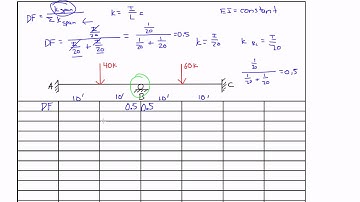 DF = k span / Σ k span
k = I / L
EI = constant
DF = I/20 / I/20 + I/20 = 1/20 / 1/20 + 1/20 = 0.5
k = I/20
k = I/20
1/20 / 1/20 + 1/20 = 0.5
40k
60k
A
B
C
10' 10' 10' 10'
DF 0.5 0.5